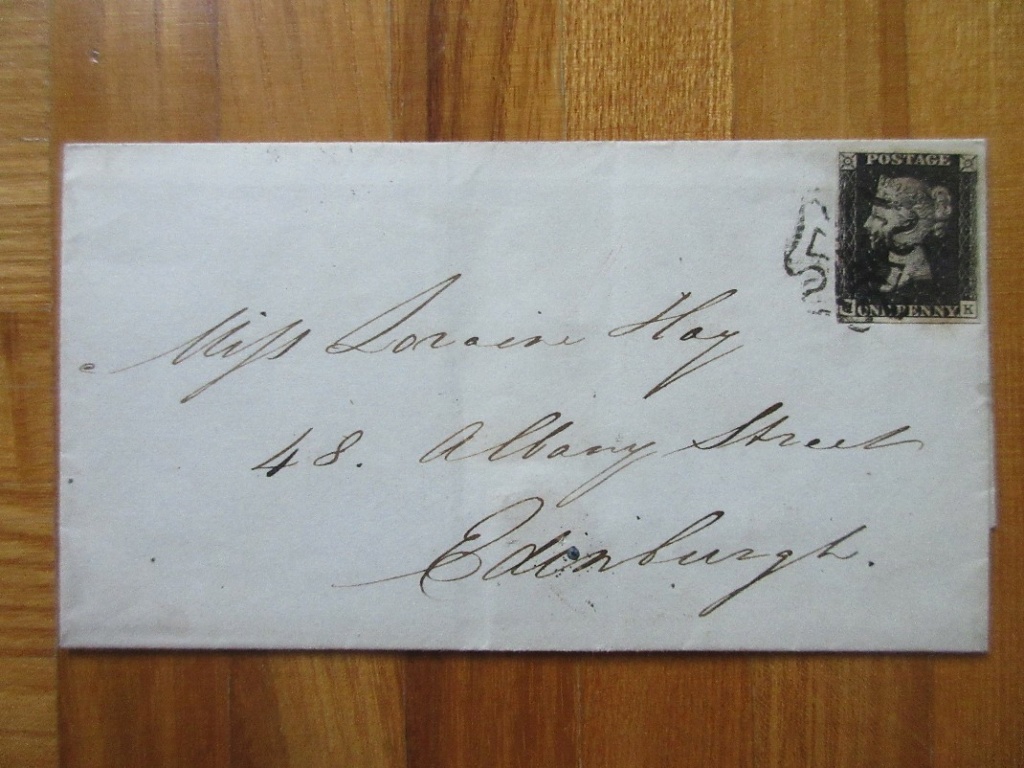 POSTAGE
ONE PENNY K
Miss Loraine Hay
48. Albany Street
Edinburgh.